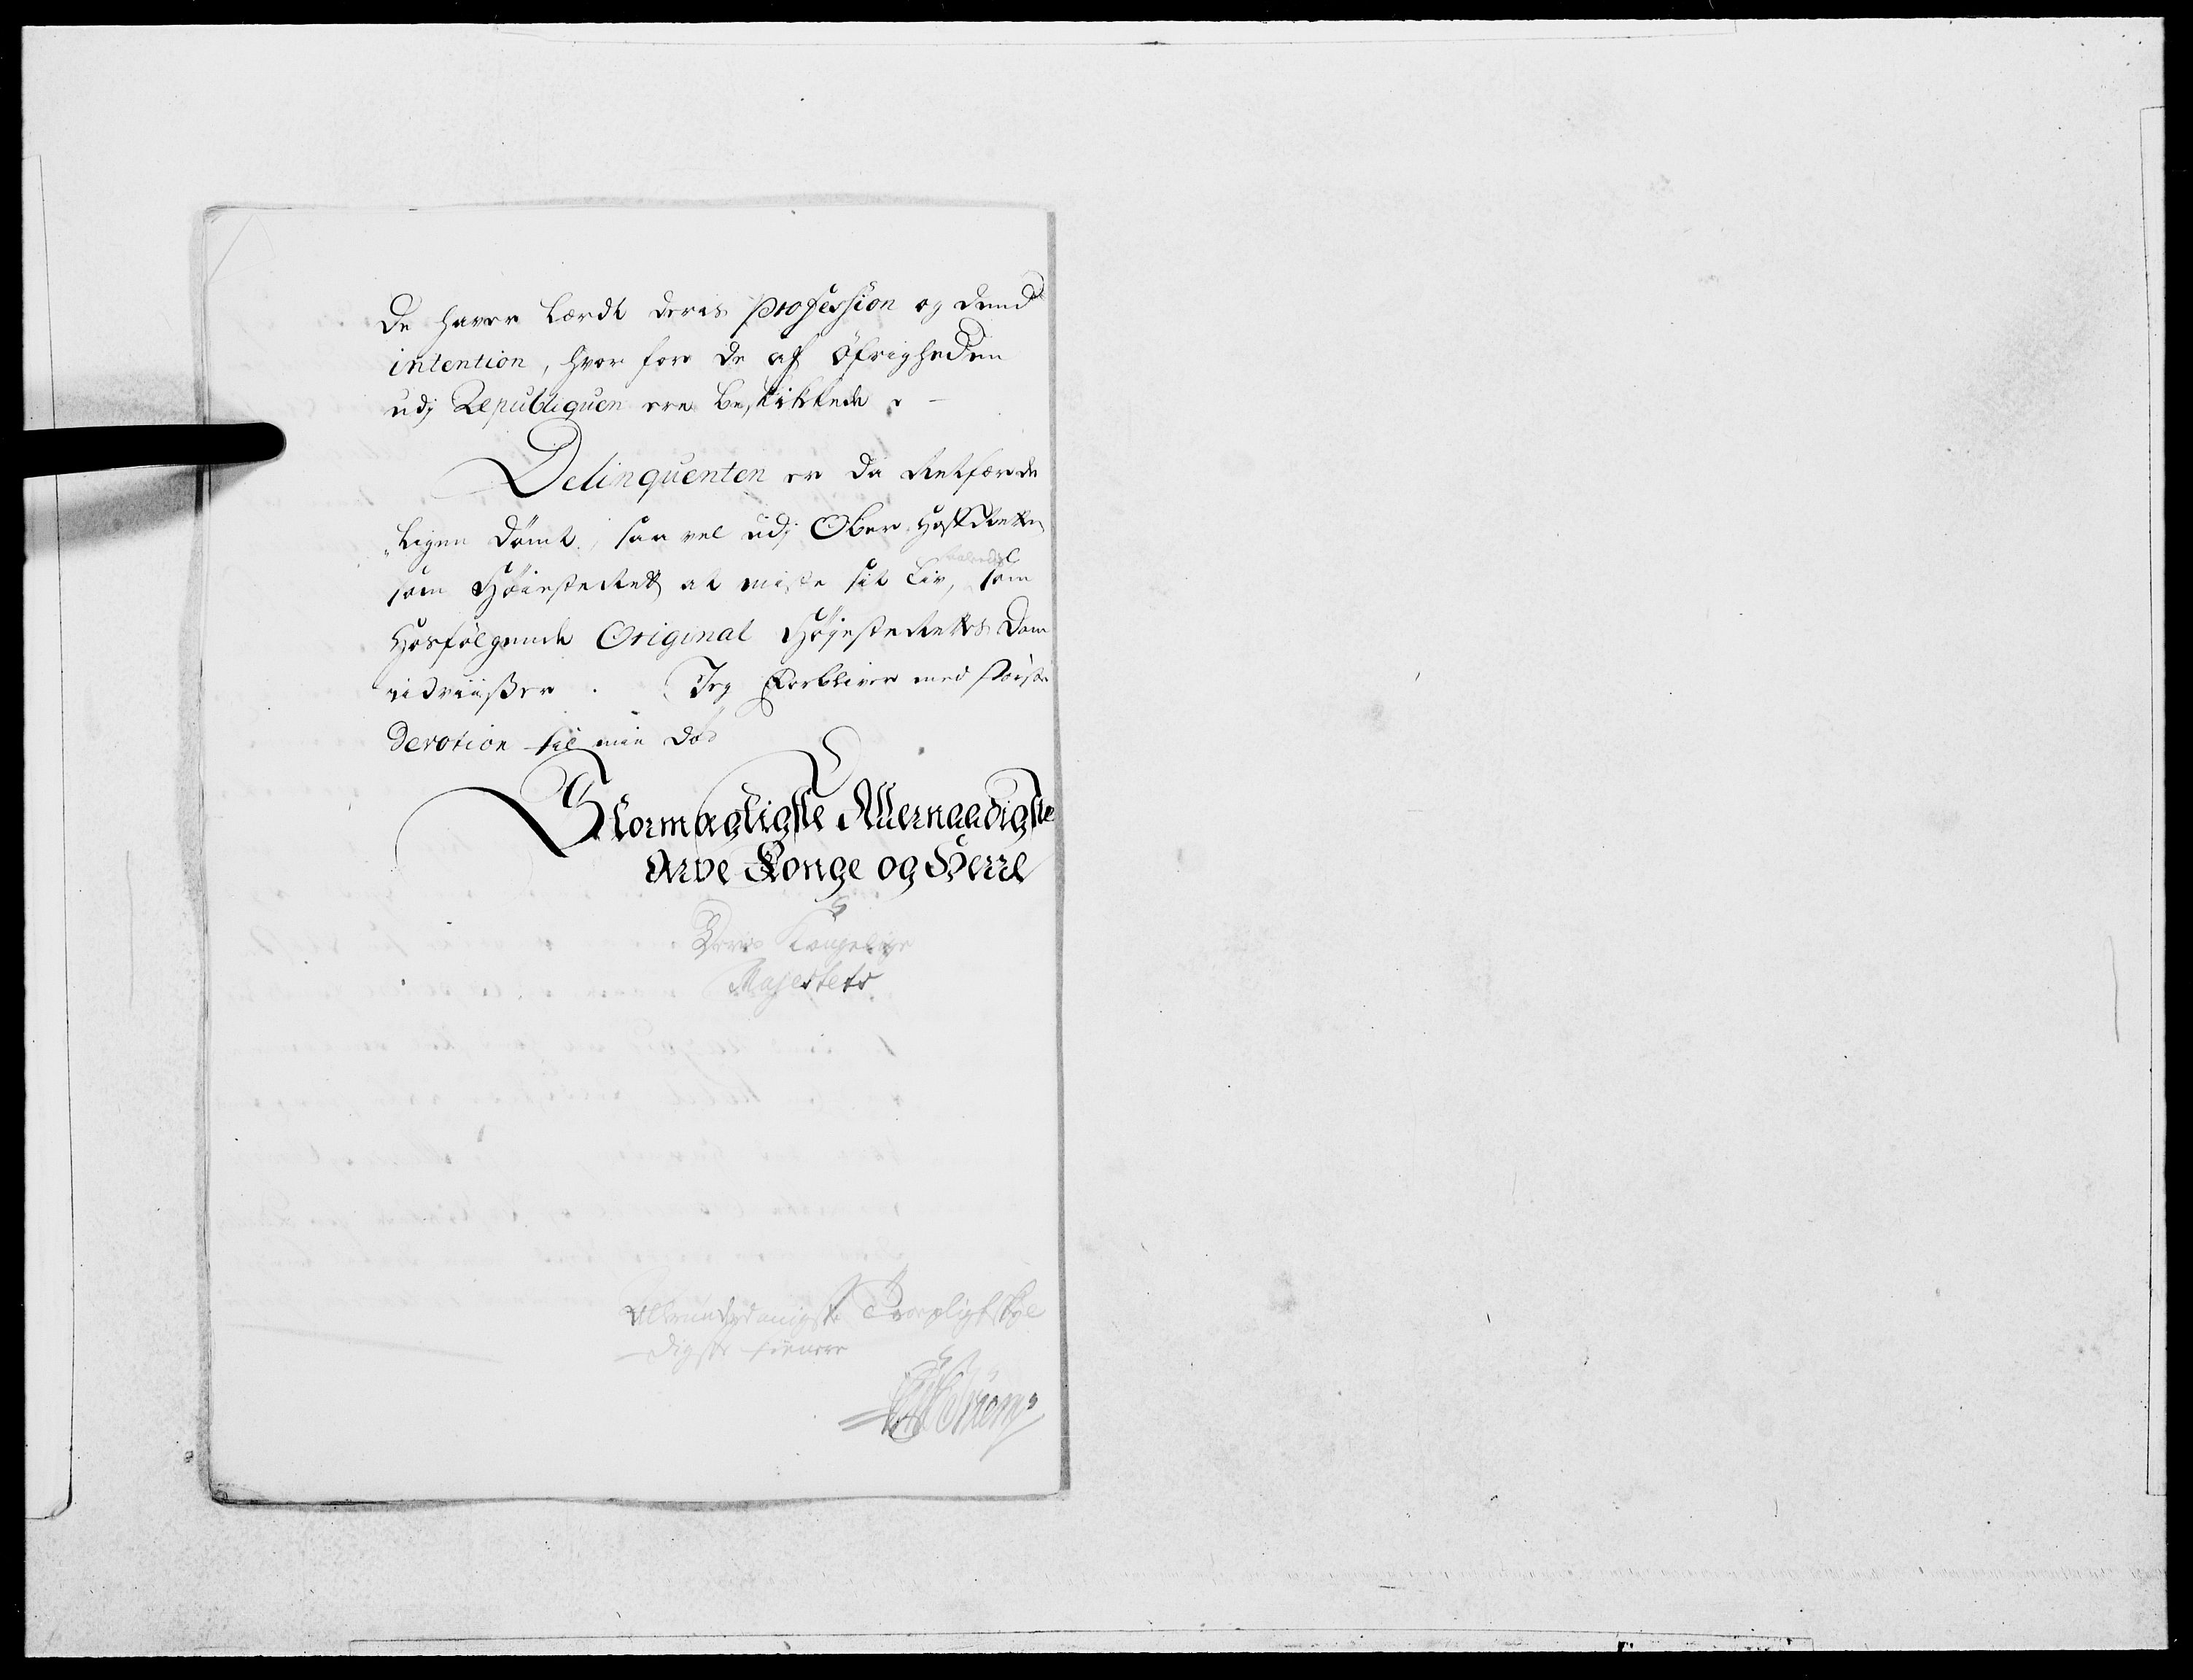 De haver Lærdt deris Profession og dend
intention, hvor fore de af Öfrigheden
udj Republiquen ere Beskikkede. -
Delinquenten er da Retfærde
„Ligen dömt, saa vel udj Ober Hoff Retten
som Höieste Rett at miste sit Liv, som
Hosfölgende Original Höjeste Retts Dom
udviißer. Jeg Forbliver med störste
Devotion til min Död
Stormægtigste Allernaadigste
Arve Konge og Herre
Deris Kongelige
Majestets
Allerunderdanigste Troepligtskyl
-digste tienere